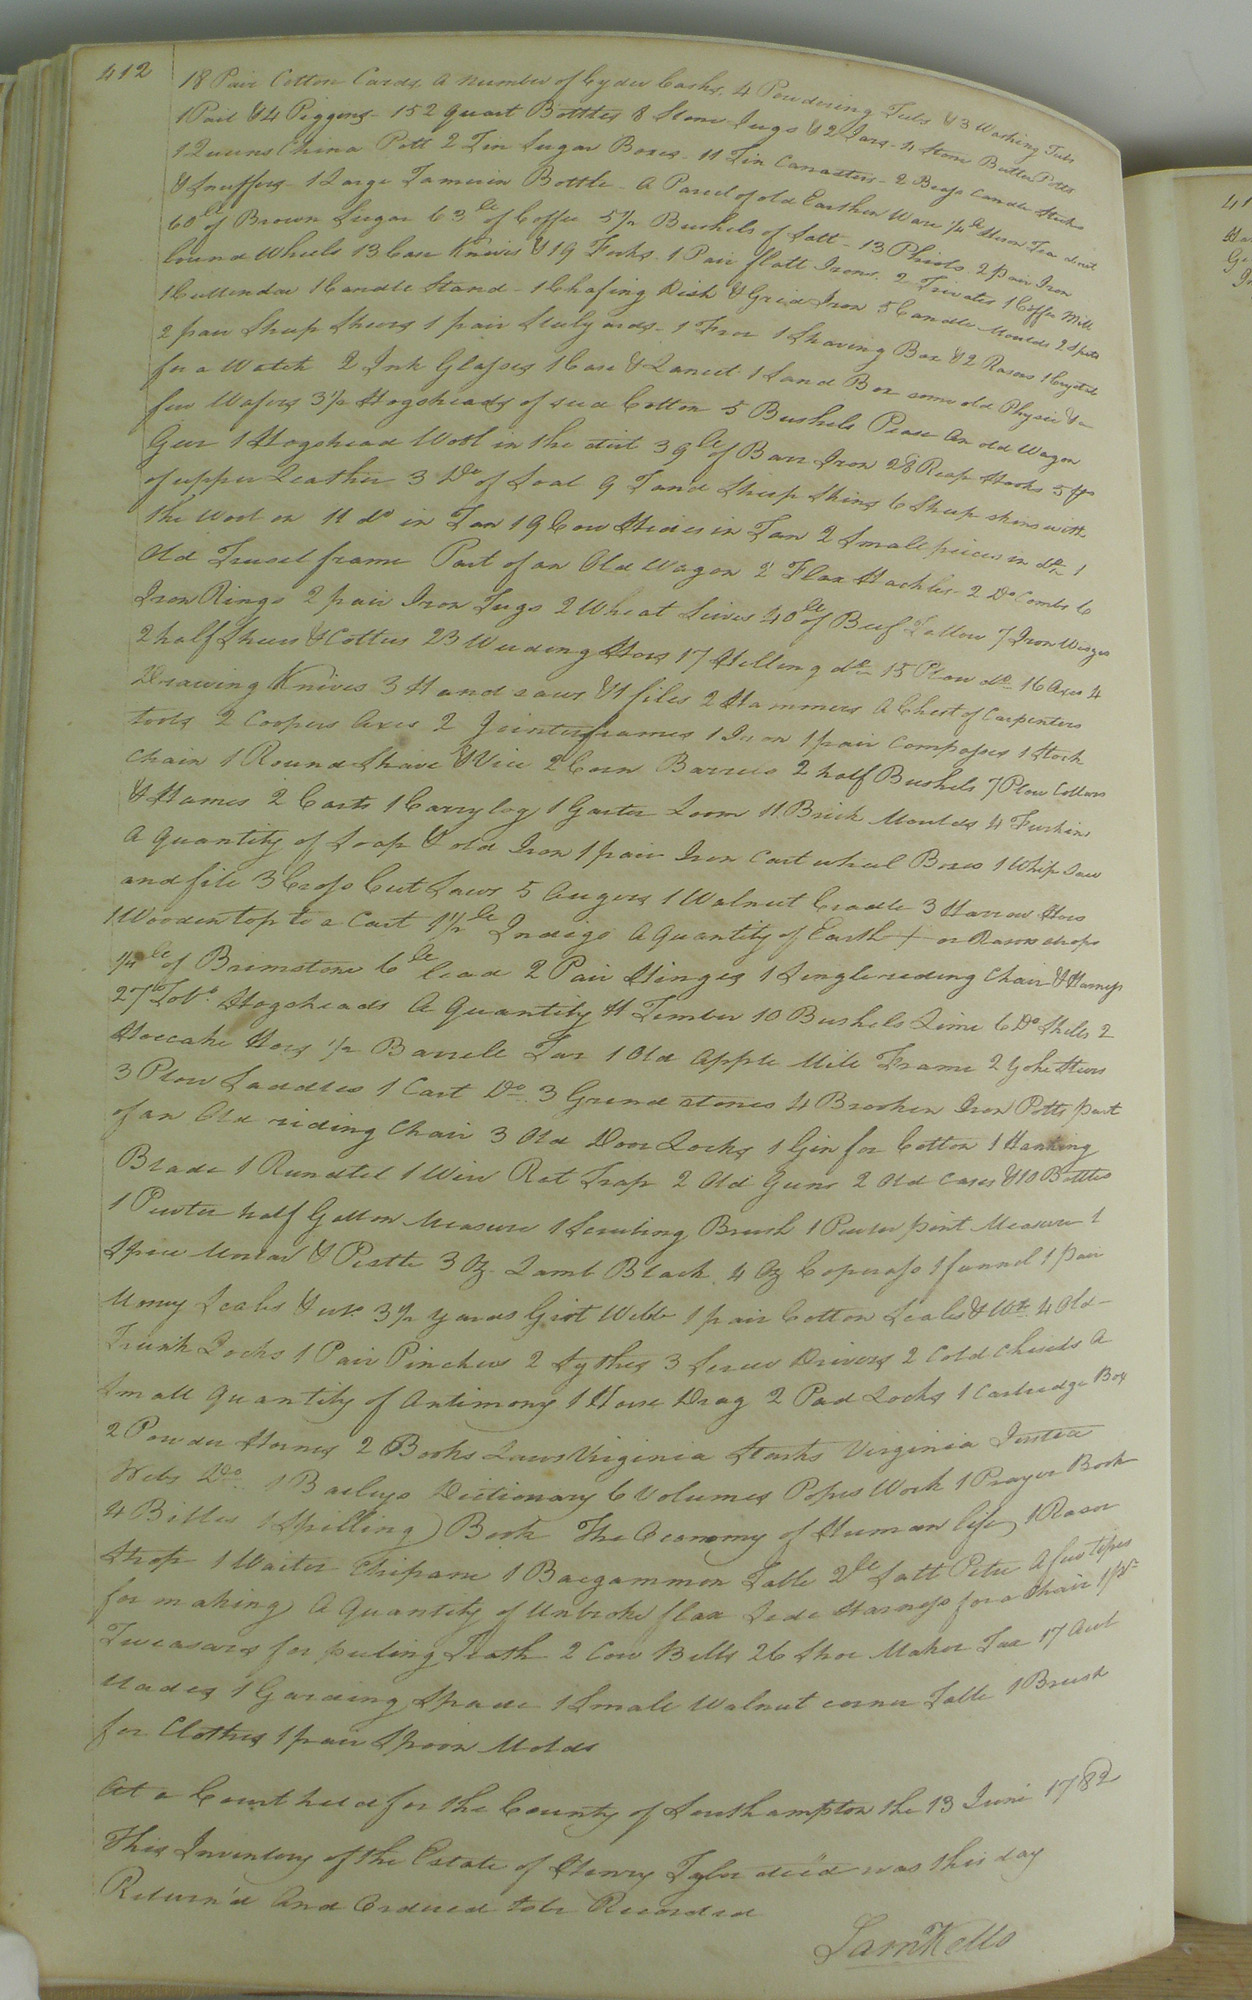 412
18 Pair Cotton Cards, A number of Cyder Casks, 4 Powdering Tubs & 3 Washing Tubs
1 Pail & 4 Piggons - 152 Quart Bottles 8 Stone Jugs & 2 Jars - 4 Stone Butter Potts
1 Queens China Pott 2 Tin Sugar Boxes - 11 Tin Canasters - 2 Brass Candle Sticks
& Snuffers - 1 Large Tamerin Bottle - A Parcel of old Earthen Ware 1/4 lb Hison Tea about
60 lb of Brown Sugar 63 lb of Coffee 5 1/2 Bushels of Salt - 13 Phiols 2 pair Iron
bound Wheels 13 Case Knives & 19 Forks. 1 Pair flatt Irons. 2 Trivates 1 Coffee Mill
1 Cullendar 1 Candle Stand - 1 Chafing Dish & Grid Iron 5 Candle Moulds 2 Spits
2 pair Sheep Shears 1 pair Stilyards - 1 Fror 1 Shaving Box & 2 Rasors 1 Crystal
for a Watch 2 Ink Glasses 1 Case & Lancet 1 Sand Box some old Physic & a
few Wafers 3 1/2 Hogsheads of seed Cotton 5 Bushels Pease An old Wagon
Geer 1 Hogshead Wool in the dirt 39 lb of Barr Iron 28 Reap Hooks 5 ps
of upper Leather 3 Do of Soal 9 Tand Sheep Skins 6 Sheep skins with
the Wool on 11 do in Tan 19 Cow Hides in Tan 2 Small peices in do 1
Old Trusel frame Part of an Old Wagon 2 Flax Hackles - 2 Do Combs 6
Iron Rings 2 pair Iron Tugs 2 Wheat Sives 40 lb of Beef Tallow 7 Iron Wedges
2 half Shears & Cotters 23 Weeding Hoes 17 Hilling do 15 Plow do 16 Axes 4
Drawing Knives 3 Hand saws & 11 files 2 Hammers A Chest of Carpenters
tools 2 Coopers Axes 2 Jointer frames 1 Iron 1 pair Compasses 1 Stock
Chain 1 Round Shave & Vice 2 Corn Barrels 2 half Bushels 7 Plow Collars
& Hames 2 Carts 1 Carrylog 1 Garter Loom 11 Brick Moulds 4 Firkins
A Quantity of Soap & old Iron 1 pair Iron Cart wheel Boxes 1 Whip Saw
and file 3 Cross Cut Saws 5 Augers 1 Walnut Cradle 3 Harrow Hoes
1 Wooden top to a Cart 1 1/2 lb Indigo A Quantity of Earth + or Rason drops
1/4 lb of Brimstone 6 lb lead 2 Pair Hinges 1 Single riding Chair & Harness
27 Tobo Hogsheads A Quantity H Timber 10 Bushels Lime 6 Do Shells 2
Hoecake Hoes 1/2 Barrell Tar 1 Old Apple Mill Frame 2 Yoke Steers
3 Plow Saddles 1 Cart Do 3 Grind stones 4 Brooken Iron Potts part
of an Old riding Chair 3 Old Door Locks 1 Gin for Cotton 1 Hanking
Blade 1 Rundlel 1 Wire Rat Trap 2 Old Guns 2 Old Cases & 10 Bottles
1 Pewter half Gallon Measure 1 Scrubing Brush 1 Pewter pint Measure 1
Spice Morter & Pestle 3 Oz. Lamb Black 4 Oz Coperass 1 funnel 1 pair
Money Scales & wts 3 1/2 yards Girt Webb 1 pair Cotton Scales & Wts. 4 Old -
Trunk Locks 1 Pair Pinchers 2 Sythes 3 Screw Drivers 2 Cold Chisels A
Small Quantity of Antimony 1 Horse Drag 2 Pad Locks 1 Cartredge Box
2 Powder Hornes 2 Books Laws Virginia Starks Virginia Justice
Webs Do. 1 Baileys Dictionary 6 Volumes Popes Work 1 Prayer Book
4 Bibles 1 Spilling Book The Oeconomy of Human life 1 Rasor
Strop 1 Waiter Chipane 1 Bacgammon Table 2 lb Salt Petre A few tipes
for making A Quantity of Unbroke flax Lede Harness for a Chair 1 pr
Tweasars for puling Teath 2 Cow Bells 26 Shoe Maker Tax 17 Awl
blades 1 Garding Spade 1 Small Walnut corner Table 1 Brush
for Clothes 1 pair Spoon Molds
At a Court held for the County of Southampton the 13 June 1782
This Inventory of the Estate of Henry Tyler dec'd was this day
Return'd And Ordered to be Recorded
Sam Kello